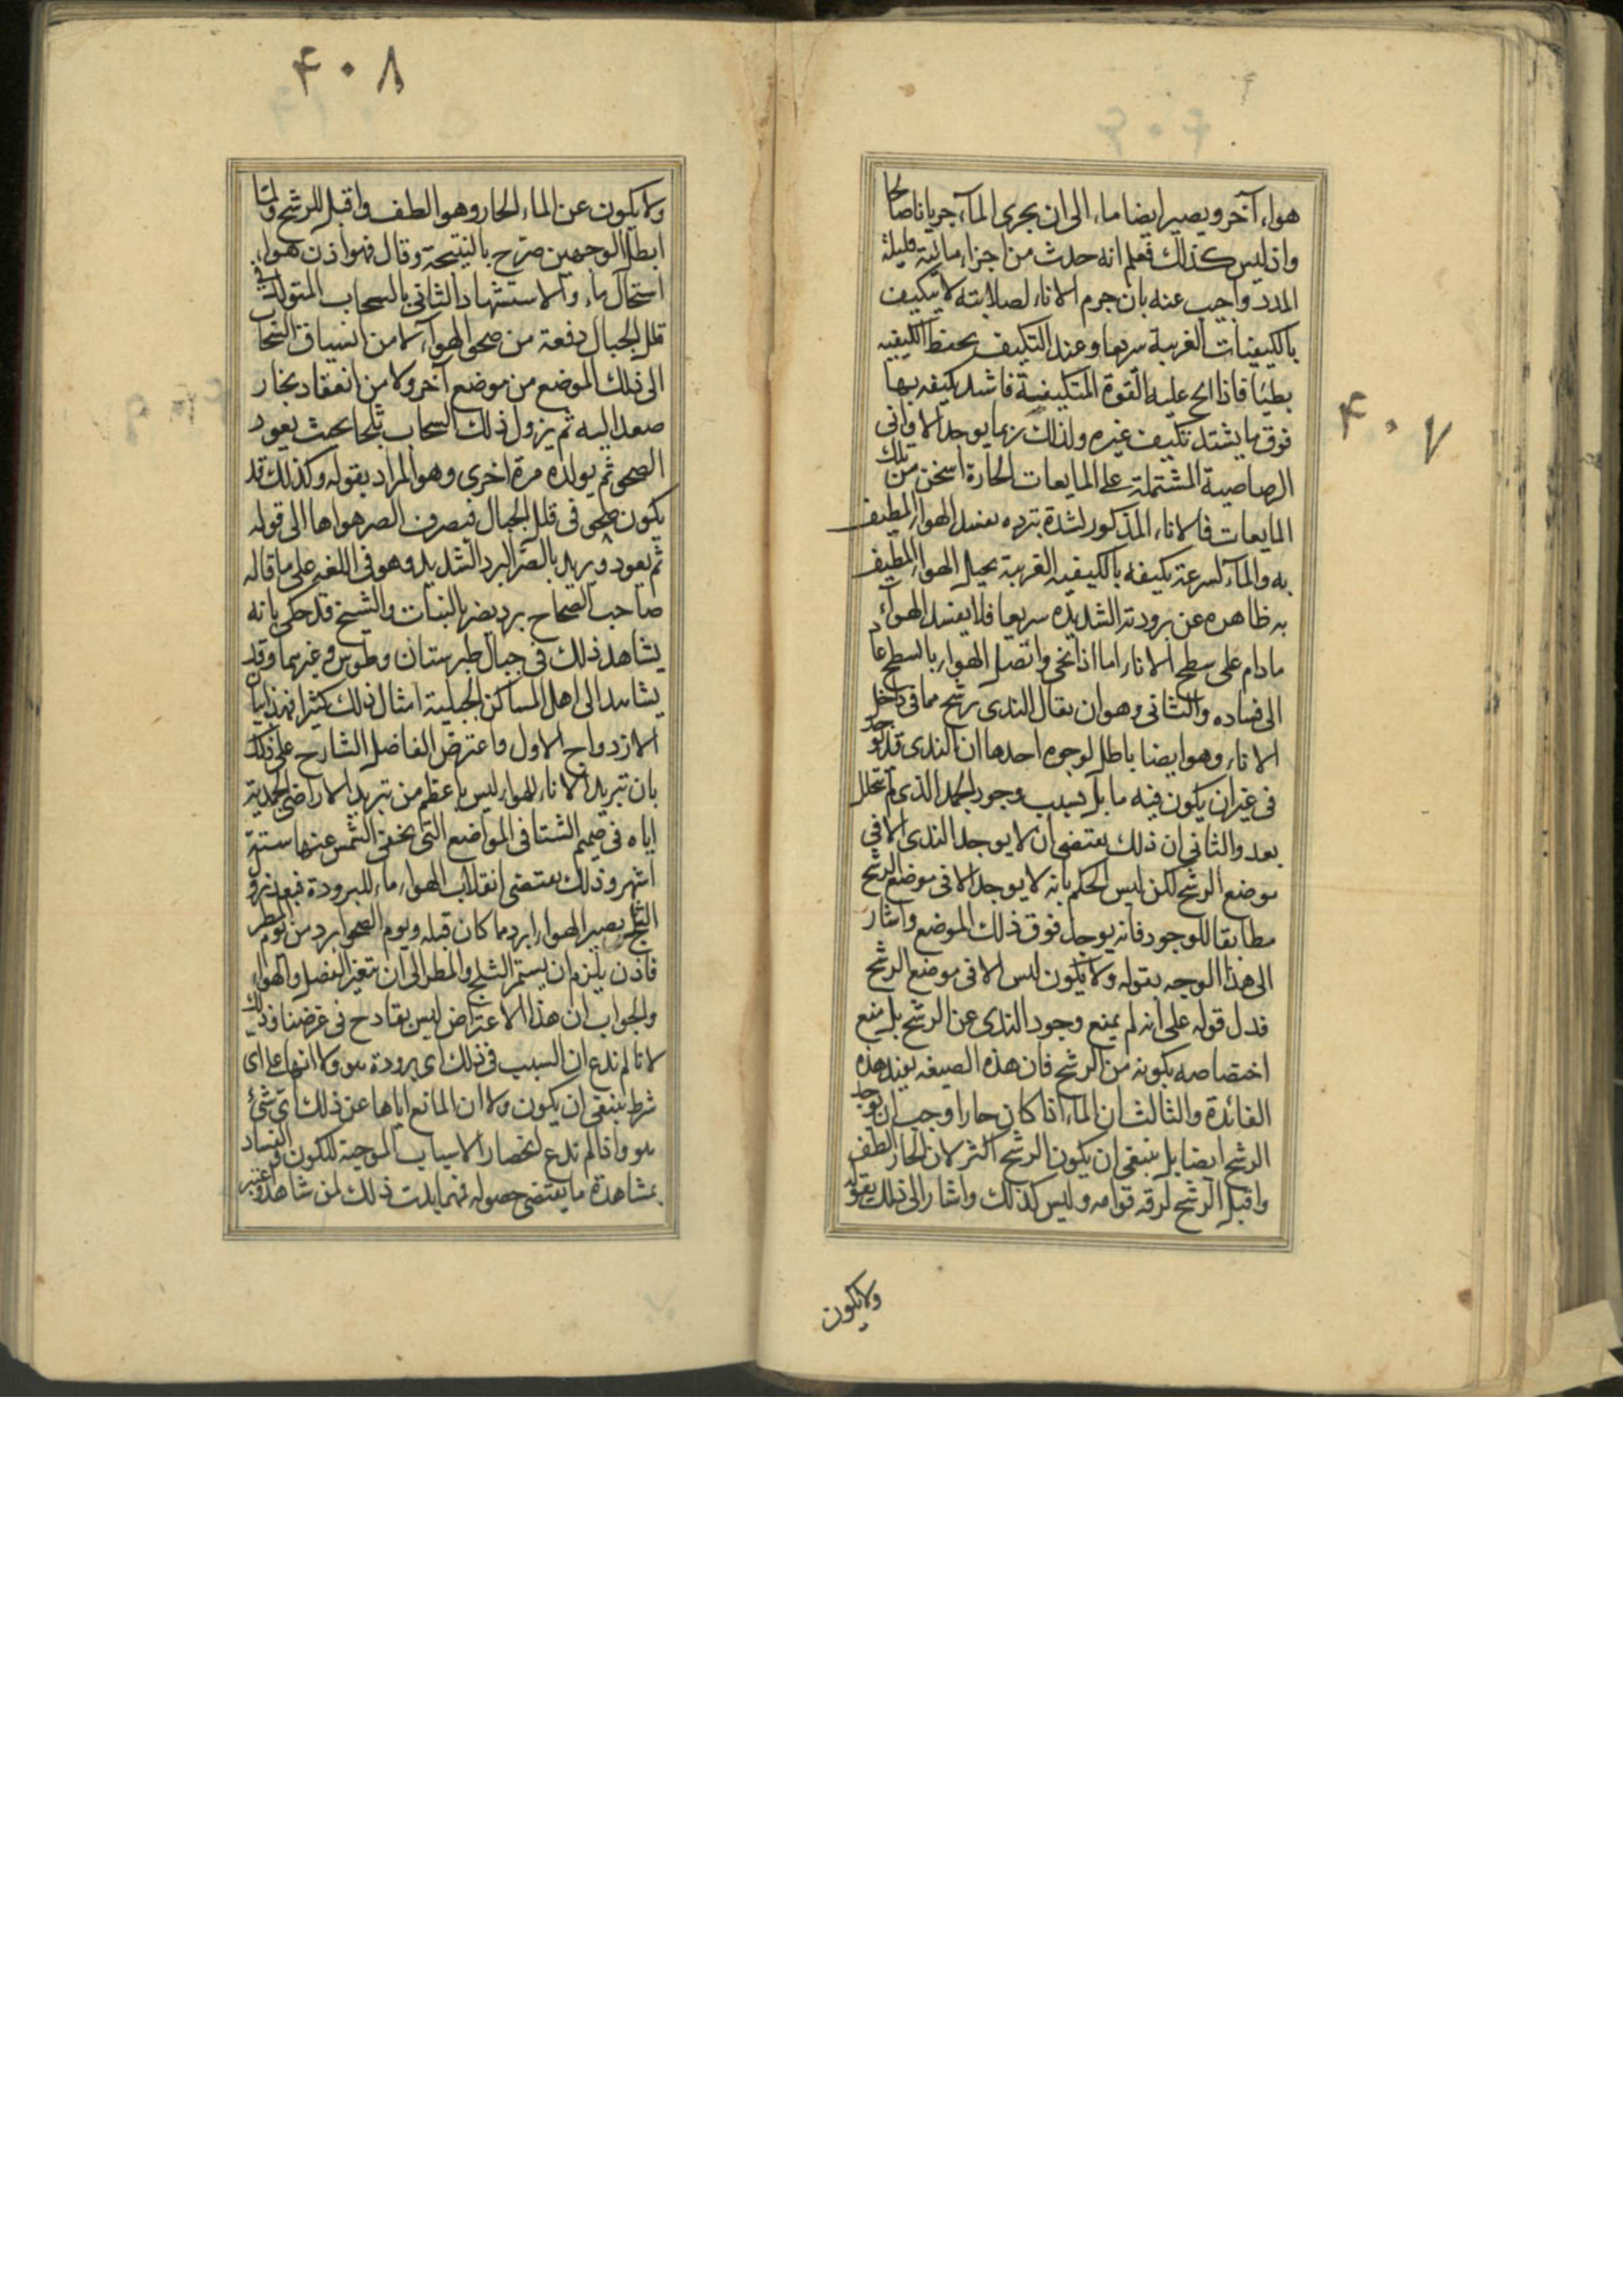 ۴۰۷
هواء آخر ويصير ايضا ماء الى ان يجرى المآء جريانا صالحا
واذ ليس كذلك فعلم انه حدث من اجزاء مائية قليلة
المدد واجيب عنه بان جرم الاناء لصلابته لا يتكيف
بالكيفيات الغريبة سريعا وعند التكيف يحفظ الكيفيه
بطيئا فاذا الح عليه القوة المتكيفية فاشتد تكيفه بها
فوق ما يشتد تكيف غيره ولذلك ربما يوجد الاوانى
الرصاصية المشتملة على المايعات الحارة اسخن من تلك
المايعات فالاناء المذكور لشدة تبرده يفسد الهواء المطيف
به والمآء لسرعة تكيفه بالكيفيه الغريبة يحيل الهواء المطيف
به ظاهره عن برودته الشديده سريعا فلا يفسد الهوآء
ما دام على سطح الاناء اما اذا نحى واتصل الهواء بالسطح عاد
الى فساده والثانى وهو ان يقال الندى رشح مما فى داخل
الاناء وهو ايضا باطل لوجوه احدها ان الندى قد يوجد
فى غير ان يكون فيه ما بل بسبب وجود الجمد الذى لم تتحلل
بعد والثانى ان ذلك يقتضى ان لا يوجد الندى الا فى
موضع الرشح لكن ليس الحكم بانه لا يوجد الا فى موضع الرشح
مطابقا للوجود فانه يوجد فوق ذلك الموضع واشار
الى هذا الوجه بقوله ولا يكون ليس الا فى موضع الرشح
فدل قوله على انه لم يمنع وجود الندى عن الرشح بل منع
اختصاصه بكونه من الرشح فان هذه الصيغه يفيد هذه
الفائدة والثالث ان الماء اذا كان حارا وجب ان يوجد
الرشح ايضا بل ينبغى ان يكون الرشح اكثر لان الحار الطف
واقبل الرشح لرقه قوامه وليس كذلك واشار الى ذلك بقوله
ولا يكون
۴۰۸
ولا يكون عن الماء الحار وهو الطف واقبل للرشح ولما
ابطل الوجهين صرح بالنتيجة وقال فهو اذن هواء
استحال ماء والاستشهاد الثانى بالسحاب المتولد فى
قلل الجبال دفعة من صحو الهوآء لا من انسياق السحاب
الى ذلك الموضع من موضع آخر ولا من انعقاد بخار
صعد اليه ثم يزول ذلك السحاب ثلجا بحيث يعود
الصحو ثم يولده مرة اخرى وهو المراد بقوله وكذلك قد
يكون صحو فى قلل الجبال فيصرف الصر هواها الى قوله
ثم يعود ويريد بالصر البرد الشديد وهو فى اللغه على ما قاله
صاحب الصحاح برد يضر بالنبات والشيخ قد حكى بانه
يشاهد ذلك فى جبال طبرستان وطوس وغيرهما وقد
يشاهد الى اهل المساكن الجبلية امثال ذلك كثيرا فهذا بيان
الازدواج الاول واعترض الفاضل الشارح على ذلك
بان تبريد الاناء للهواء ليس باعظم من تبريد الاراضى الجمدية
اياه فى صميم الشتا فى المواضع التى يخفى الشمس عنها ستة
اشهر وذلك يقتضى انقلاب الهواء ماء للبرودة فبعد نزول
الثلج يصير الهواء ابرد مما كان قبله ويوم الصحو ابرد من يوم المطر
فاذن يلزم ان يستمر الثلج والمطر الى ان يتغير الفصل والهواء
والجواب ان هذا الاعتراض ليس بقادح فى غرضنا وذلك
لانا لم ندع ان السبب فى ذلك اى برودة هو ولا انها على اى
شرط ينبغى ان يكون ولا ان المانع اياها عن ذلك اى شئ
هو واذا لم ندع انحصار الاسباب الموجبة للكون والفساد
بمشاهدة ما يقتضى حصوله فهما بدت ذلك لمن شاهد واعتبر